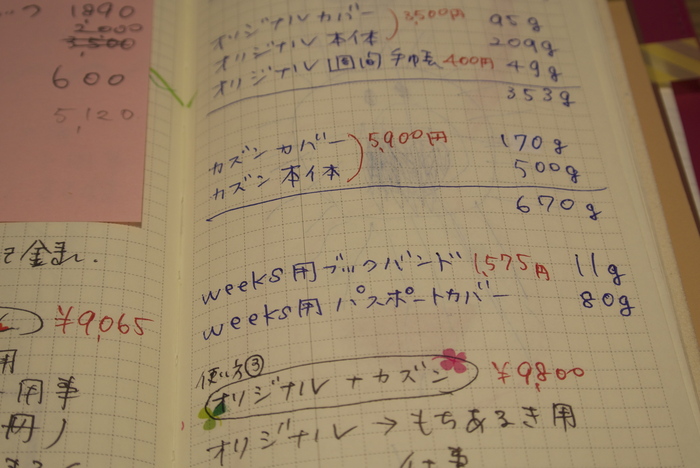 1890
2,000
3,500
600
5,120
金
¥9,065
用
用事
オリジナルカバー 3,500円 95g
オリジナル本体 209g
オリジナル週間手帳 400円 49g
353g
カズンカバー 5,900円 170g
カズン本体 500g
670g
weeks用ブックバンド 1,575円 11g
weeks用パスポートカバー 80g
使い方③
オリジナル+カズン ¥9,800
オリジナル→もちあるき用
仕事